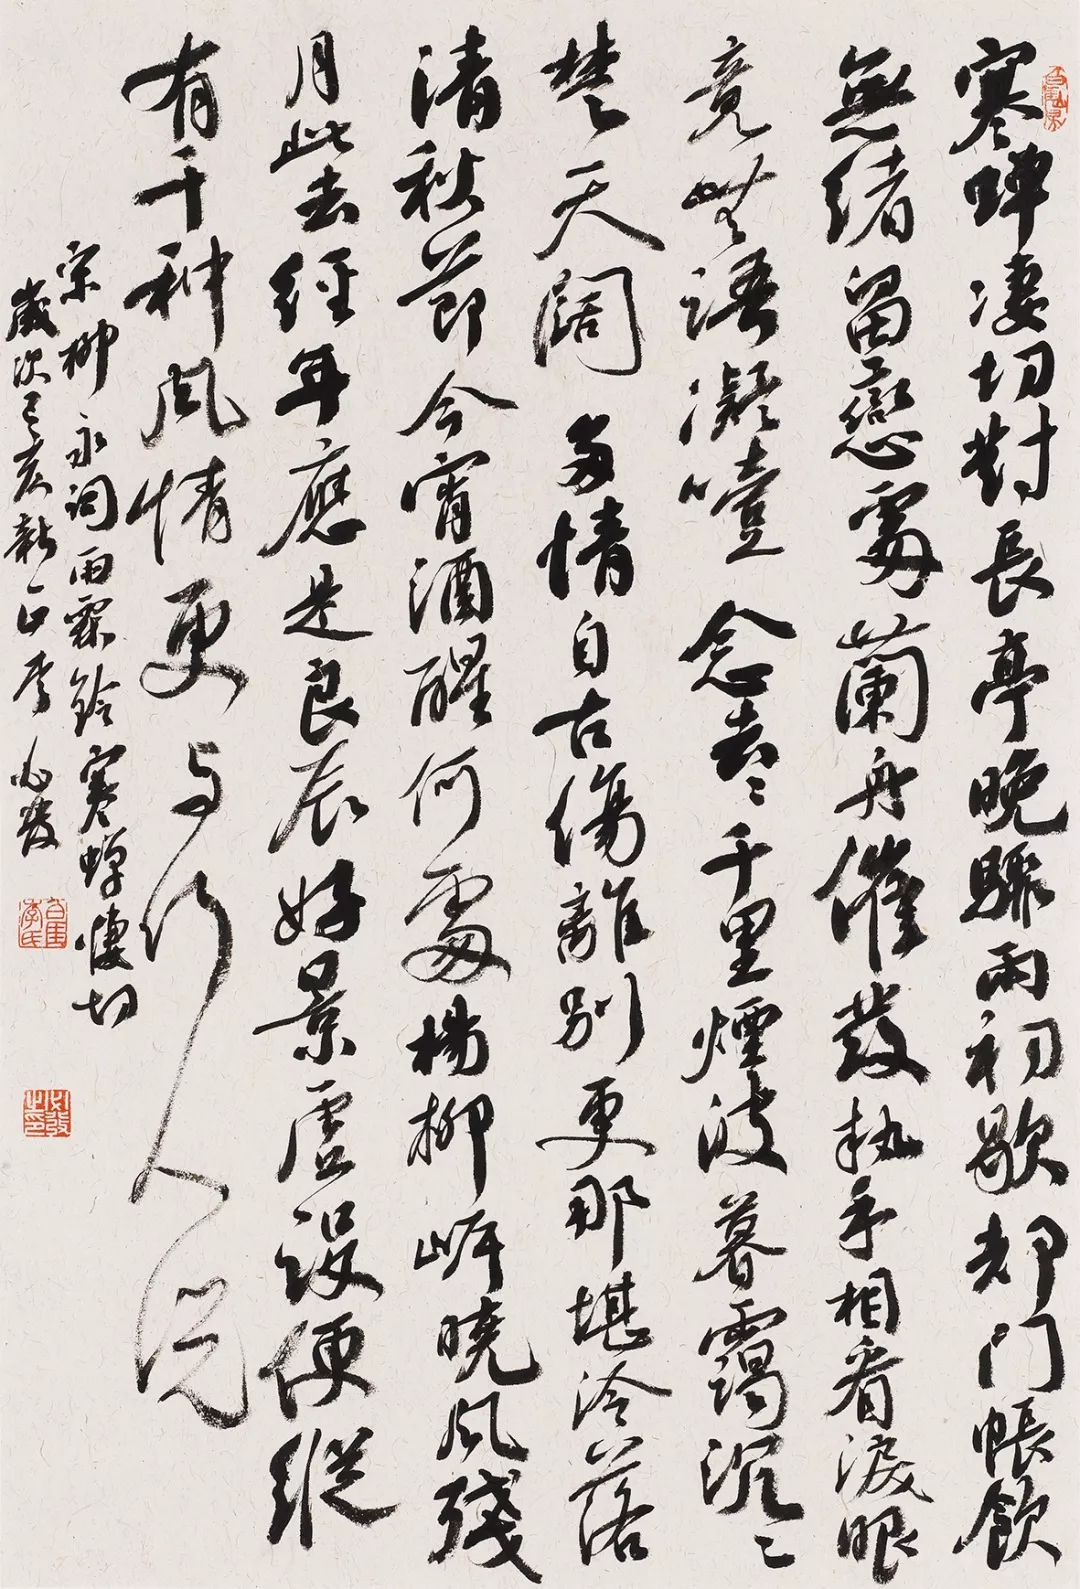 寒蟬凄切對長亭晚驟雨初歇却門帳飲
無緒留戀處蘭舟催發執手相看淚眼
竟無語凝噎念去去千里煙波暮靄沉沉
楚天闊多情自古傷離別更那堪冷落
清秋節今宵酒醒何處楊柳岸曉風殘
月此去經年應是良辰好景虛設便縱
有千种風情更与何人說
宋柳永詞雨霖鈴寒蟬悽切
歲次己亥新正李必發